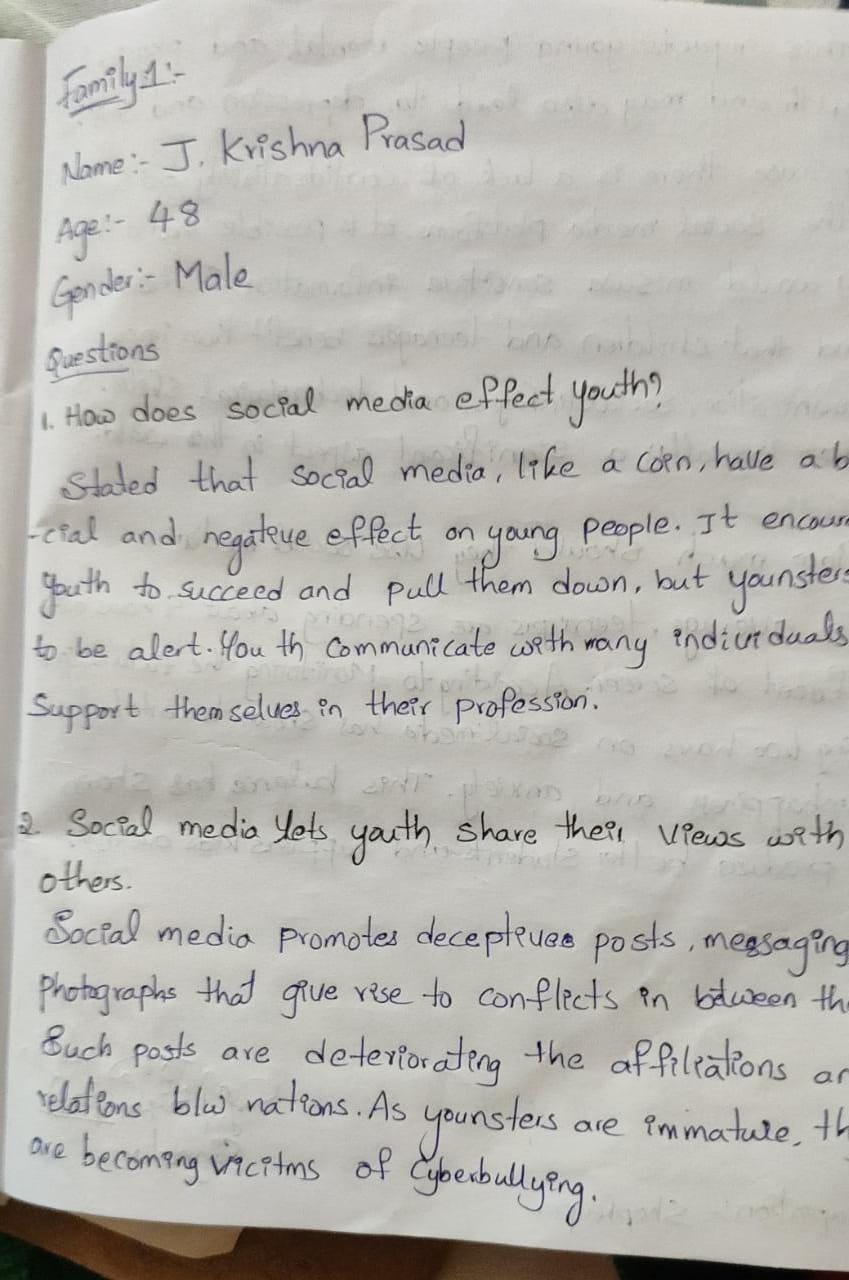 Family 1:-
Name:- J. Krishna Prasad
Age:- 48
Gender:- Male
Questions
1. How does social media effect youth?
Stated that social media, like a coin, have a b
-cial and negateve effect on young people. It encour
youth to succeed and pull them down, but younsters
to be alert. You th communicate with many individuals
Support themselves in their profession.
2. Social media lets youth share their views with
others.
Social media promotes deceptives posts, messaging
photographs that give rise to conflicts in between th
Such posts are deteriorating the affiliations an
relations b/w nations. As younsters are immature, th
are becoming vicitms of Cyberbullying.